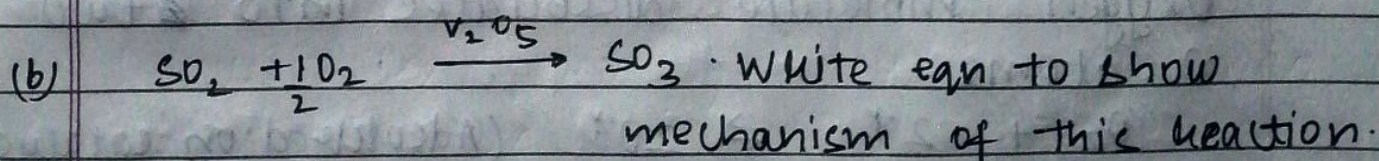 (b) SO₂ + 1/2 O₂ —V₂O₅→ SO₃. Write eqn to show
mechanism of this reaction.